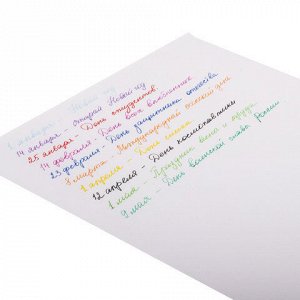 1 января - Новый год
14 января - старый Новый год
25 января - День студентов
14 февраля - День всех влюбленных
23 февраля - День защитника отечества
8 марта - Международный женский день
1 апреля - День смеха
12 апреля - День космонавтики
1 мая - Праздник весны и труда
9 мая - День